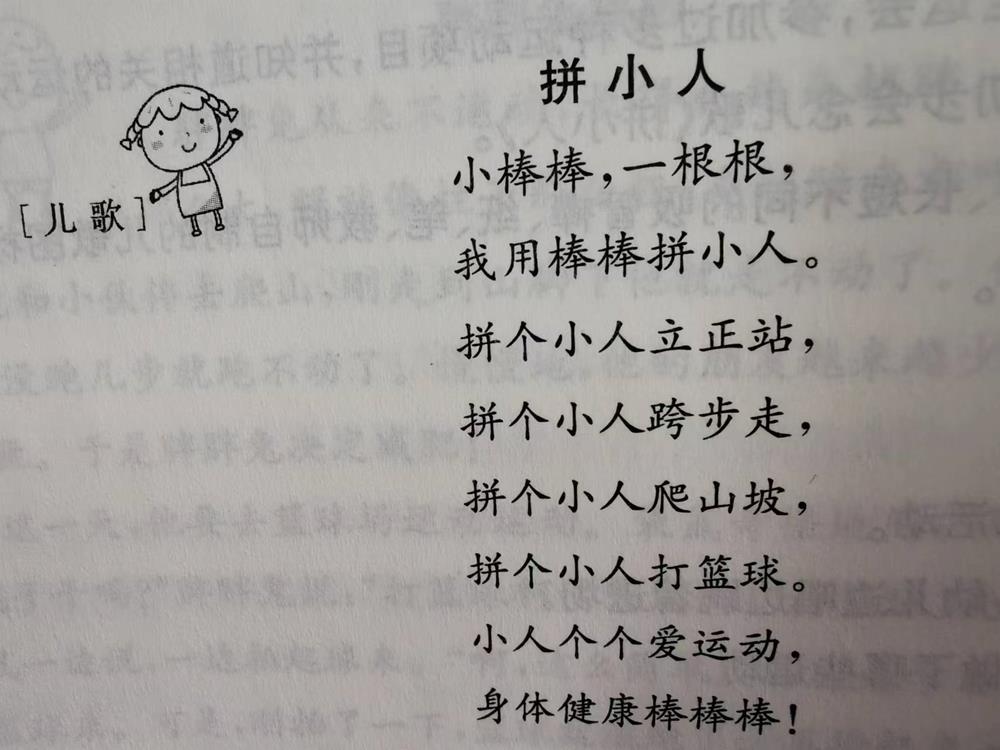 拼小人
[儿歌]
小棒棒，一根根，
我用棒棒拼小人。
拼个小人立正站，
拼个小人跨步走，
拼个小人爬山坡，
拼个小人打篮球。
小人个个爱运动，
身体健康棒棒棒！